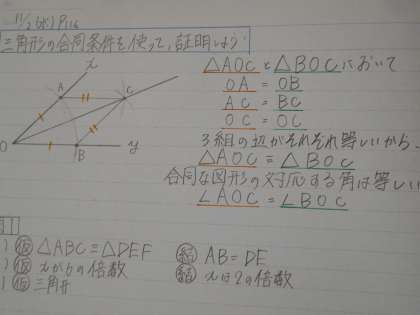 11/2(水) P116
三角形の合同条件を使って、証明しよう
x
A
C
O
B
y
△AOCと△BOCにおいて
OA = OB
AC = BC
OC = OC
3組の辺がそれぞれ等しいから、
△AOC ≡ △BOC
合同な図形の対応する角は等しい
∠AOC = ∠BOC
) 仮 △ABC≡△DEF 結 AB=DE
) 仮 xが6の倍数 結 xは2の倍数
) 仮 三角形